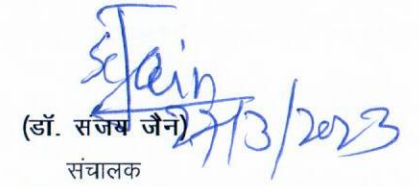 SJain
27/3/2023
(डॉ. संजय जैन)
संचालक